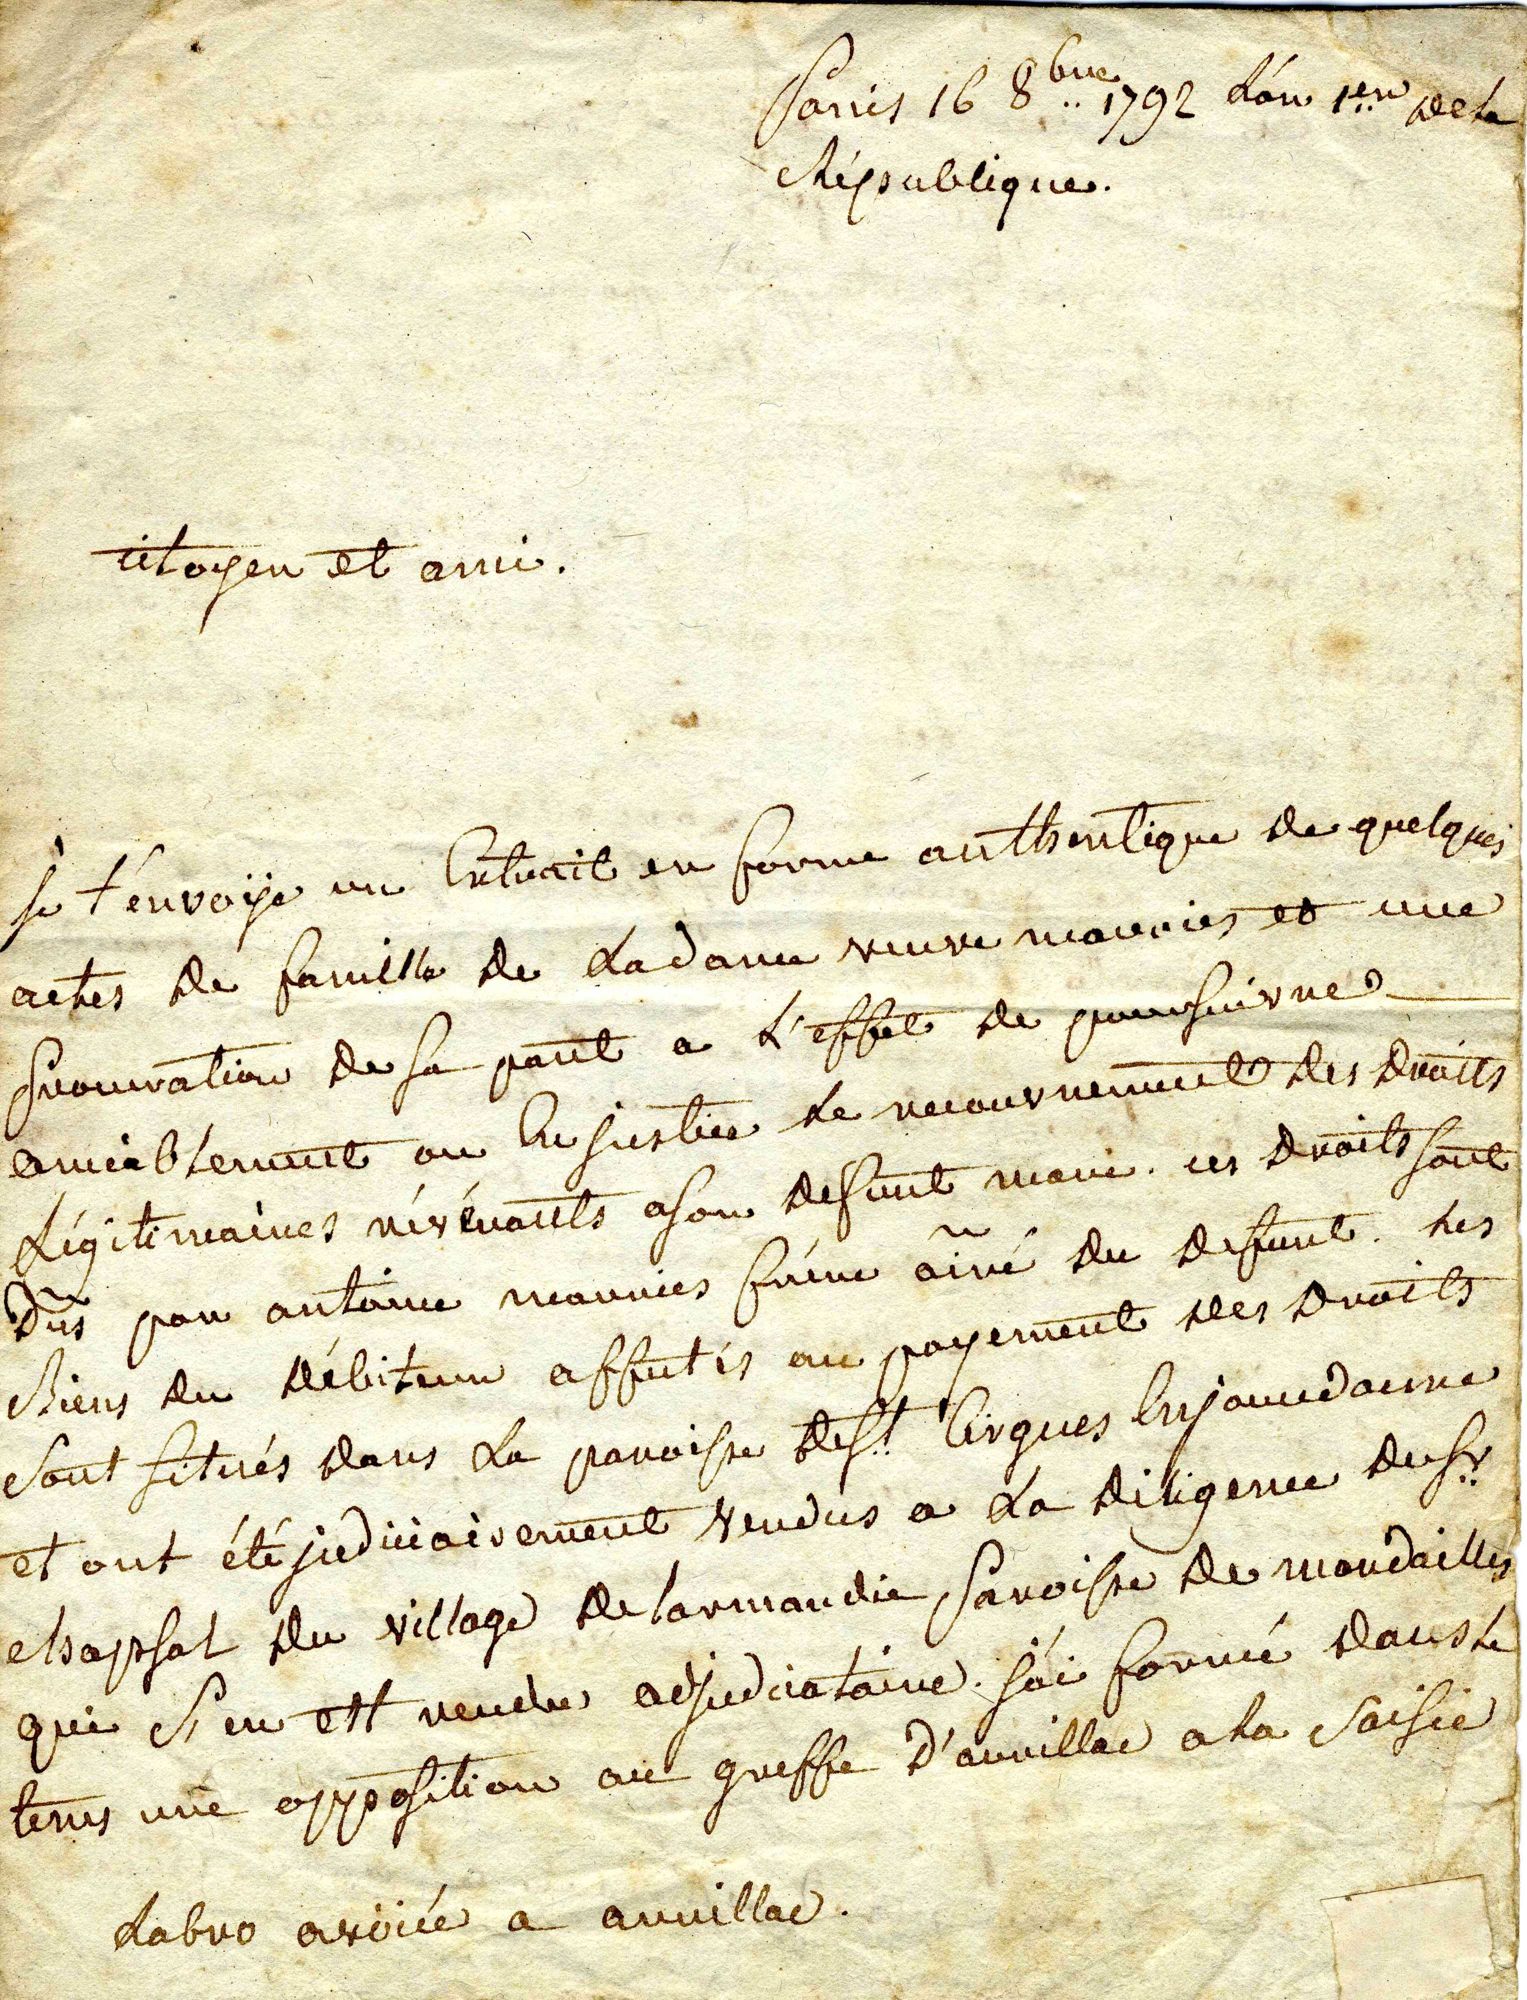 Paris 16 8bre 1792 L'an 1er de la
République.
citoyen et ami.
Je t'envoÿe un Extrait en forme authentique de quelques
actes de famille de La dame veuve mauries et une
procuration de sa part a L'effet de poursuivre
amiablement ou En justice Le recouvrement des droits
Légitimaires révérants a son defunt mari. ces droits sont
dûs par antoine mauries frére aîné du defunt. Les
Biens du débiteur affectés au payement des droits
sont situés dans La paroisse de St. Cirgues En jourdanne
et ont été judiciairement vendus a La diligence du Sr.
chapsal du village de Larmandie paroisse de mandailles
qui s'en est rendu adjudicataire. j'ai formé dans Le
tems une opposition au greffe d'aurillac a La saisie
Labro avöüé a aurillac.